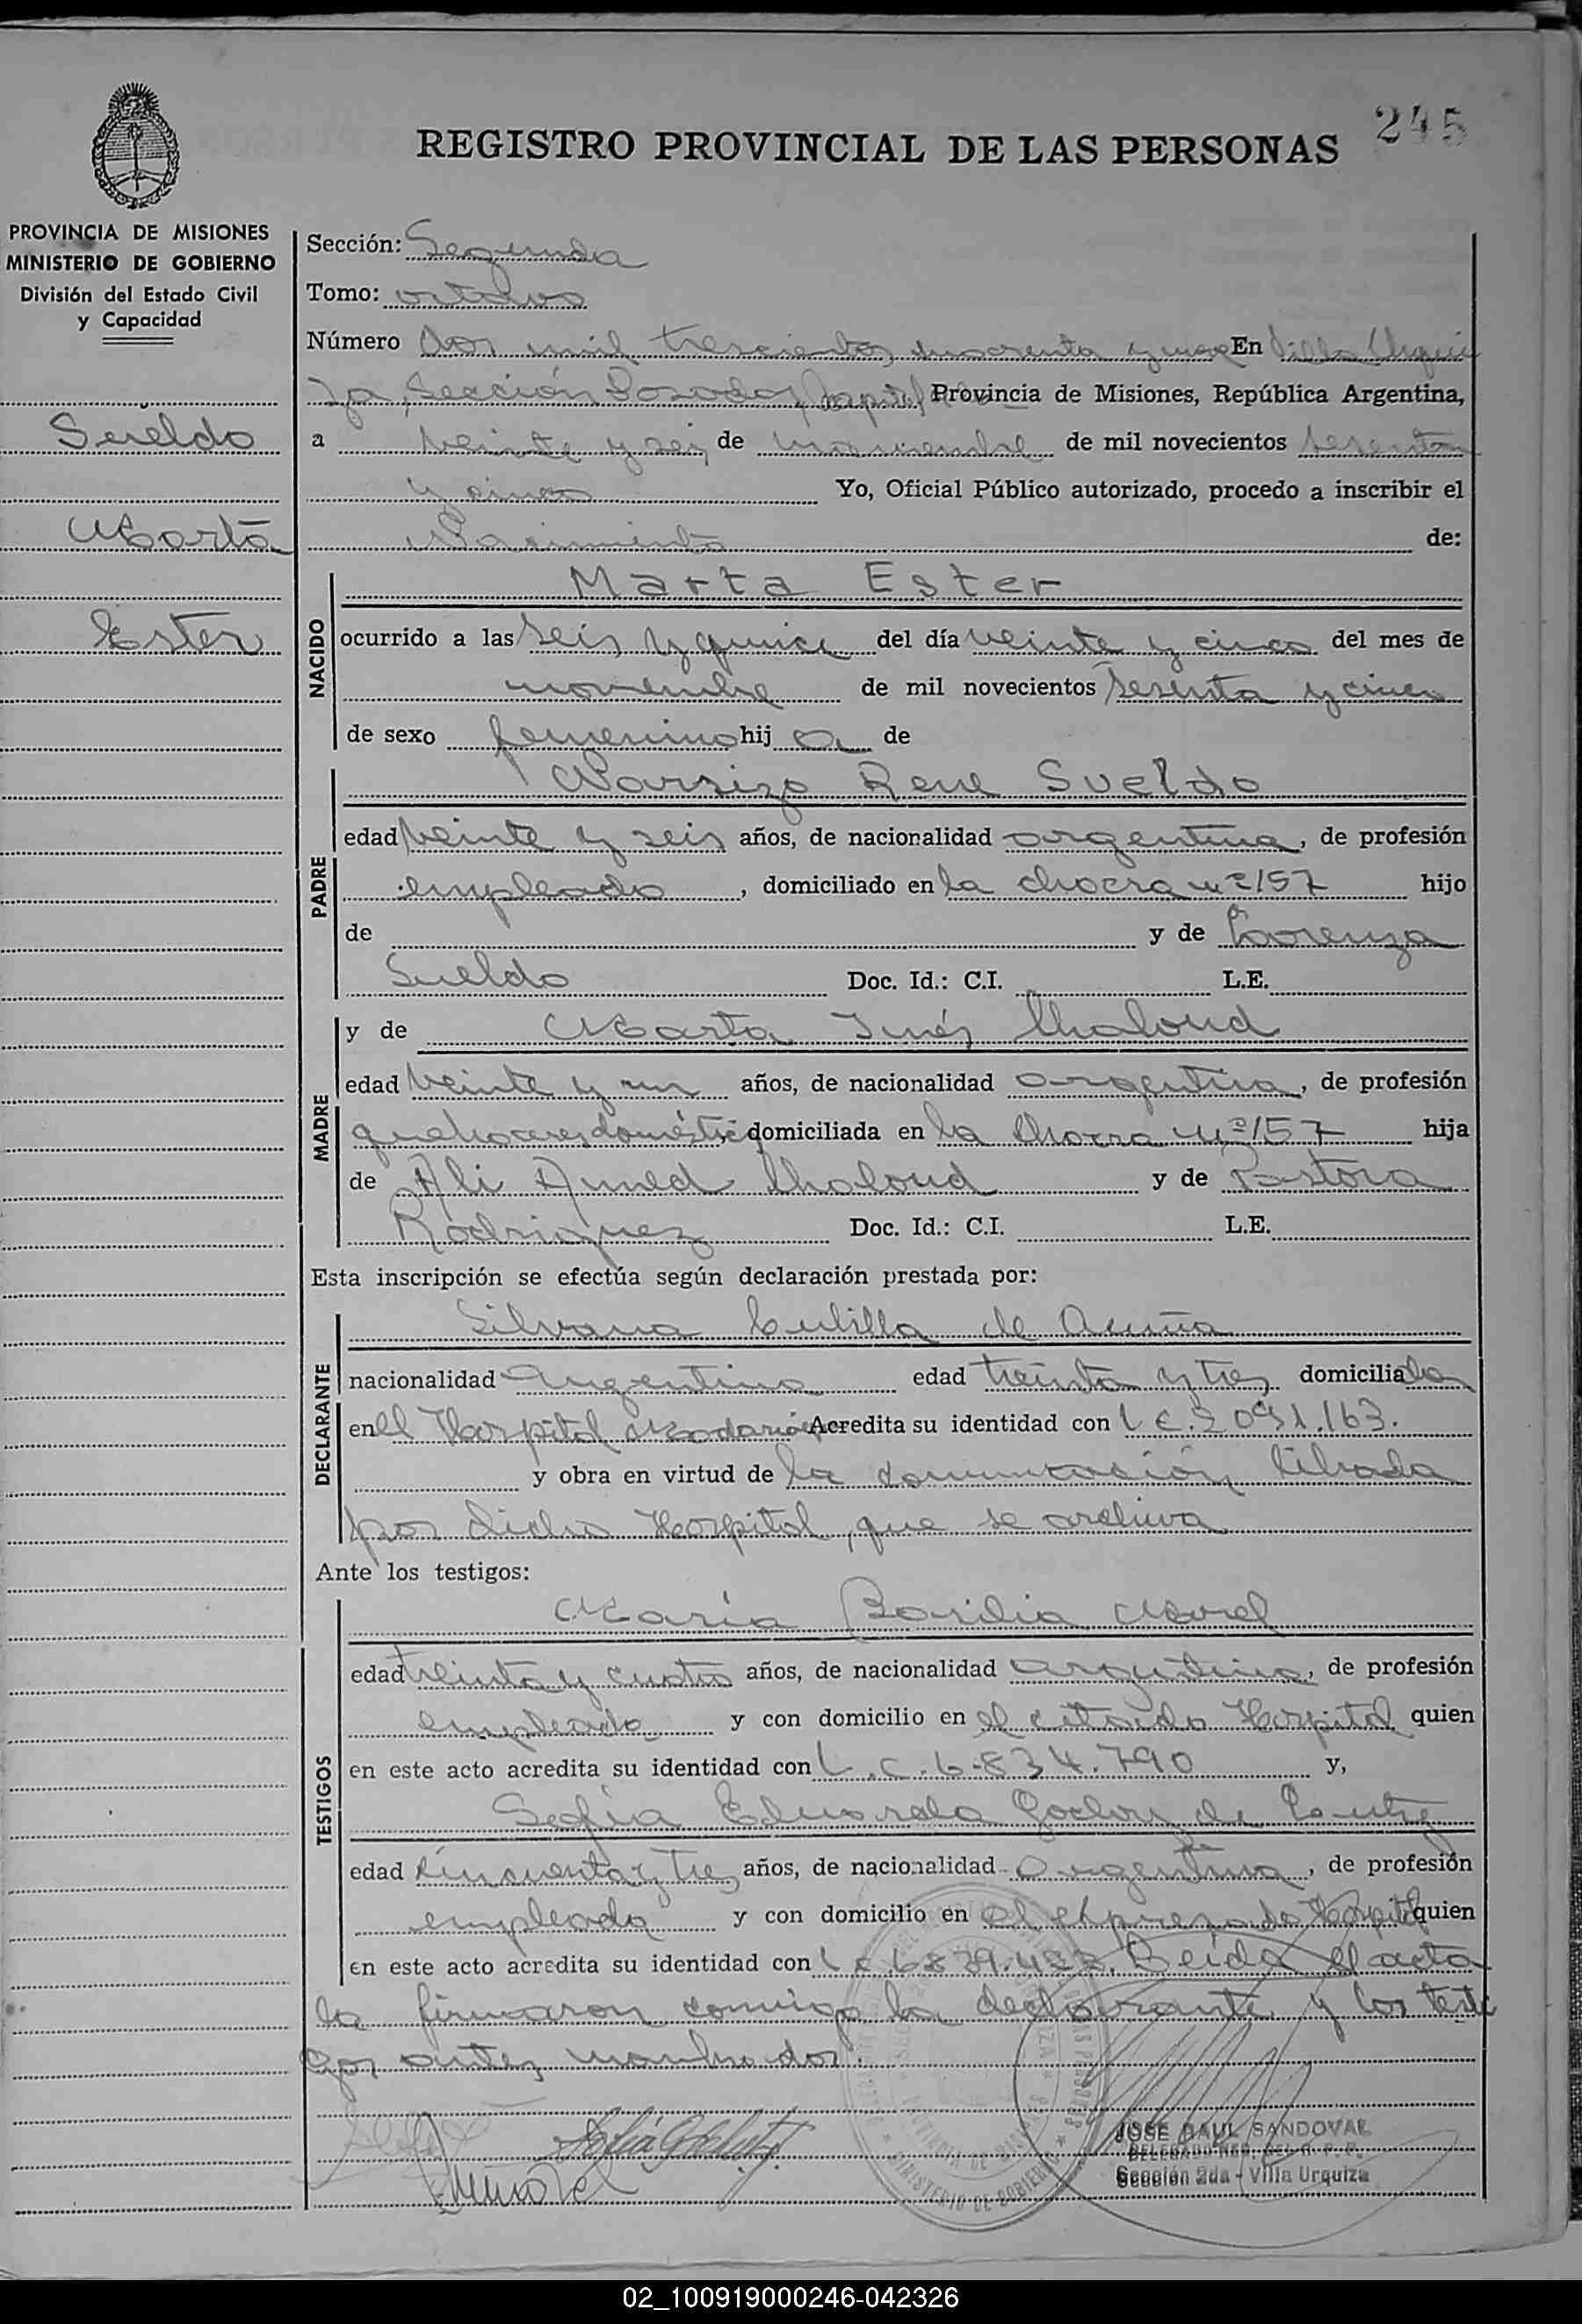 245
REGISTRO PROVINCIAL DE LAS PERSONAS
PROVINCIA DE MISIONES
MINISTERIO DE GOBIERNO
División del Estado Civil
y Capacidad
Sueldo
Marta
Ester
Sección: Segunda
Tomo: octavo
Número Dos mil trescientos y nueve En Villa Urqui
za, Sección Posadas, Capital Provincia de Misiones, República Argentina,
a veinte y seis de noviembre de mil novecientos sesenta
y cinco Yo, Oficial Público autorizado, procedo a inscribir el
Nacimiento de:
NACIDO
Marta Ester
ocurrido a las seis y quince del día veinte y cinco del mes de
noviembre de mil novecientos sesenta y cinco
de sexo femenino hij a de
PADRE
Narzizo Rene Sueldo
edad veinte y seis años, de nacionalidad argentina, de profesión
empleado, domiciliado en la chacra nº 157 hijo
de y de Lorenza
Sueldo Doc. Id.: C.I. L.E.
MADRE
y de Marta Inés Chaloud
edad veinte y un años, de nacionalidad argentina, de profesión
quehaceres domésticos domiciliada en la Chacra nº 157 hija
de Ali Amed Chaloud y de Pastora
Rodriguez Doc. Id.: C.I. L.E.
Esta inscripción se efectúa según declaración prestada por:
DECLARANTE
Silvana de Acuña
nacionalidad Argentina edad treinta y tres domiciliada
en el Hospital Madariaga Acredita su identidad con L.C. 2.091.163.
y obra en virtud de la documentación librada
por dicho Hospital, que se archiva
Ante los testigos:
TESTIGOS
María Basilia Morel
edad treinta y cuatro años, de nacionalidad argentina, de profesión
empleada y con domicilio en el citado Hospital quien
en este acto acredita su identidad con L.C. 6.834.790 y,
Sofía Eduarda Godoy de
edad cincuenta y tres años, de nacionalidad argentina, de profesión
empleada y con domicilio en el expresado Hospital quien
en este acto acredita su identidad con L.C. Leída el acta
la firmaron conmigo la declarante y los testi
gos antes nombrados.
JOSE RAUL SANDOVAL
Sección 2da - Villa Urquiza
MINISTERIO DE GOBIERNO
02_100919000246-042326